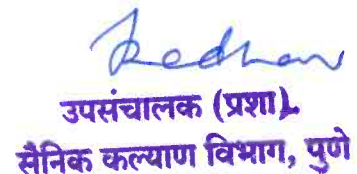 उपसंचालक (प्रशा).
सैनिक कल्याण विभाग, पुणे